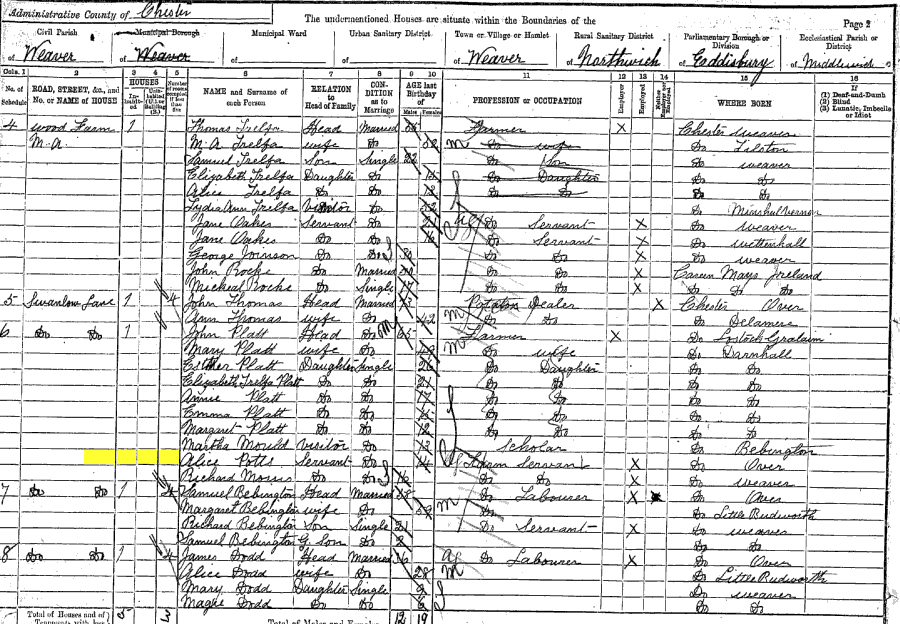 Administrative County of Chester
The undermentioned Houses are situate within the Boundaries of the
Page 2
Civil Parish
Municipal Borough
Municipal Ward
Urban Sanitary District
Town or Village or Hamlet
Rural Sanitary District
Parliamentary Borough or Division
Ecclesiastical Parish or District
of Weaver of Weaver of of of Weaver of Northwich of Eddisbury of Middlewich
Cols. 1 2 3 4 5 6 7 8 9 10 11 12 13 14 15 16
No. of Schedule
ROAD, STREET, &c., and No. or NAME of HOUSE
HOUSES
NAME and Surname of each Person
RELATION to Head of Family
CONDITION as to Marriage
AGE last Birthday of
Males Females
PROFESSION or OCCUPATION
Employer
Employed
WHERE BORN
If (1) Deaf-and-Dumb (2) Blind (3) Lunatic, Imbecile or Idiot
4 Wood Farm 1 Thomas Trelfa Head Married Farmer X Chester Weaver
M.A. M.A. Trelfa wife Do Do wife Do Tilston
Samuel Trelfa Son Single 22 Do Son Do weaver
Elizabeth Trelfa Daughter Do Do Daughter Do Do
Alice Trelfa Do Do 13 Do Do Do Do
Lydia Ann Trelfa Visitor Do Do Minshul Vernon
Jane Oakes Servant Do Do Servant X Do weaver
Jane Oakes Do Do 16 Do Servant X Do Wettenhall
George Joinson Do Do 30 Do Do X Do weaver
John Rocke Do Married Do Do X Mayo Ireland
Micheal Rocke Do Single Do Do X Do Do Do
5 Swanlow Lane 1 4 John Thomas Head Married Potatoe Dealer X Chester Over
Ann Thomas wife Do 42 Do Do Do Delamere
6 Do Do 1 John Platt Head Do 65 Farmer X Do Lostock Gralam
Mary Platt wife Do 49 Do wife Do Darnhall
Esther Platt Daughter Single 26 Do Daughter Do Do
Elizabeth Trelfa Platt Do Do 21 Do Do Do Do
Annie Platt Do Do 17 Do Do Do Do
Emma Platt Do Do Do Do Do Do
Margaret Platt Do Do 12 Do Do Do Do
Martha Mould Visitor Do 13 Scholar Do Bebington
Alice Potts Servant Do Farm Servant X Do Over
Richard Morris Do Do 16 Do Do X Do weaver
7 Do Do 1 4 Samuel Bebington Head Married 58 Do Labourer X Do Over
Margaret Bebington wife Do 59 Do Little Budworth
Richard Bebington Son Single 21 Do Servant X Do weaver
Samuel Bebington G. Son Do 2 Do Do
8 Do Do 1 4 James Dodd Head Married 36 Do Labourer X Do Over
Alice Dodd wife Do 28 Do Little Budworth
Mary Dodd Daughter Single Do weaver
Magie Dodd Do Do Do Do
Total of Houses and of
5
Total of Males and Females
12 19